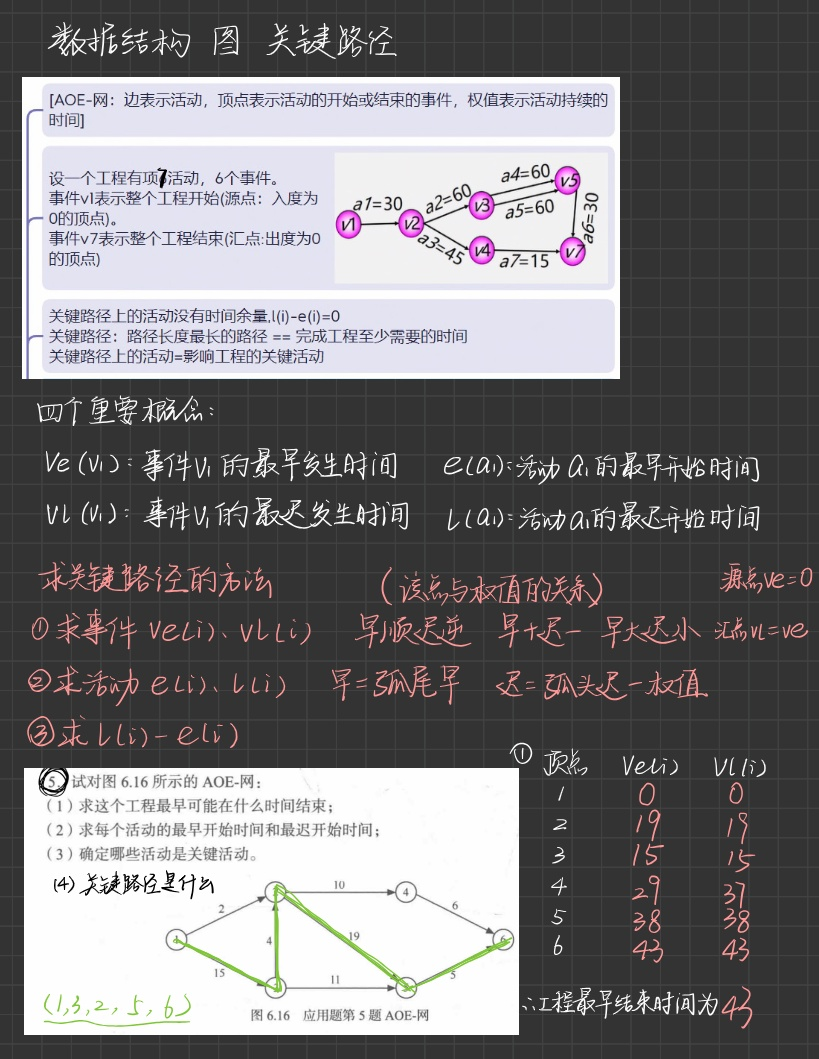 数据结构 图 关键路径
[AOE-网：边表示活动，顶点表示活动的开始或结束的事件，权值表示活动持续的
时间]
设一个工程有项7活动，6个事件。
事件v1表示整个工程开始(源点：入度为
0的顶点)。
事件v7表示整个工程结束(汇点:出度为0
的顶点)
a1=30
a2=60
a3=45
a4=60
a5=60
a6=30
a7=15
v1
v2
v3
v4
v5
v7
关键路径上的活动没有时间余量,l(i)-e(i)=0
关键路径：路径长度最长的路径 == 完成工程至少需要的时间
关键路径上的活动=影响工程的关键活动
四个重要概念：
Ve(V1)：事件V1的最早发生时间 e(a1)：活动a1的最早开始时间
VL(V1)：事件V1的最迟发生时间 L(a1)：活动a1的最迟开始时间
求关键路径的方法 (该点与权值的关系) 源点ve=0
①求事件 Ve(i)、VL(i) 早顺迟逆 早+迟- 早大迟小 汇点VL=ve
②求活动 e(i)、L(i) 早=弧尾早 迟=弧头迟-权值
③求 L(i)-e(i)
5. 试对图 6.16 所示的 AOE-网：
（1）求这个工程最早可能在什么时间结束；
（2）求每个活动的最早开始时间和最迟开始时间；
（3）确定哪些活动是关键活动。
(4) 关键路径是什么
10
4
2
6
4
19
1
6
15
11
5
(1,3,2,5,6)
图 6.16 应用题第 5 题 AOE-网
① 顶点 Ve(i) Vl(i)
1 0 0
2 19 19
3 15 15
4 29 37
5 38 38
6 43 43
∴工程最早结束时间为43